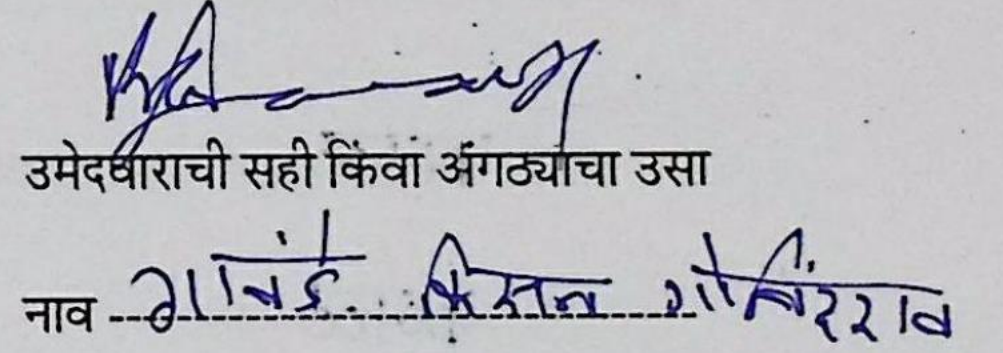 उमेदवाराची सही किंवा अंगठ्याचा उसा
नाव गावंडे किसन गोविंदराव